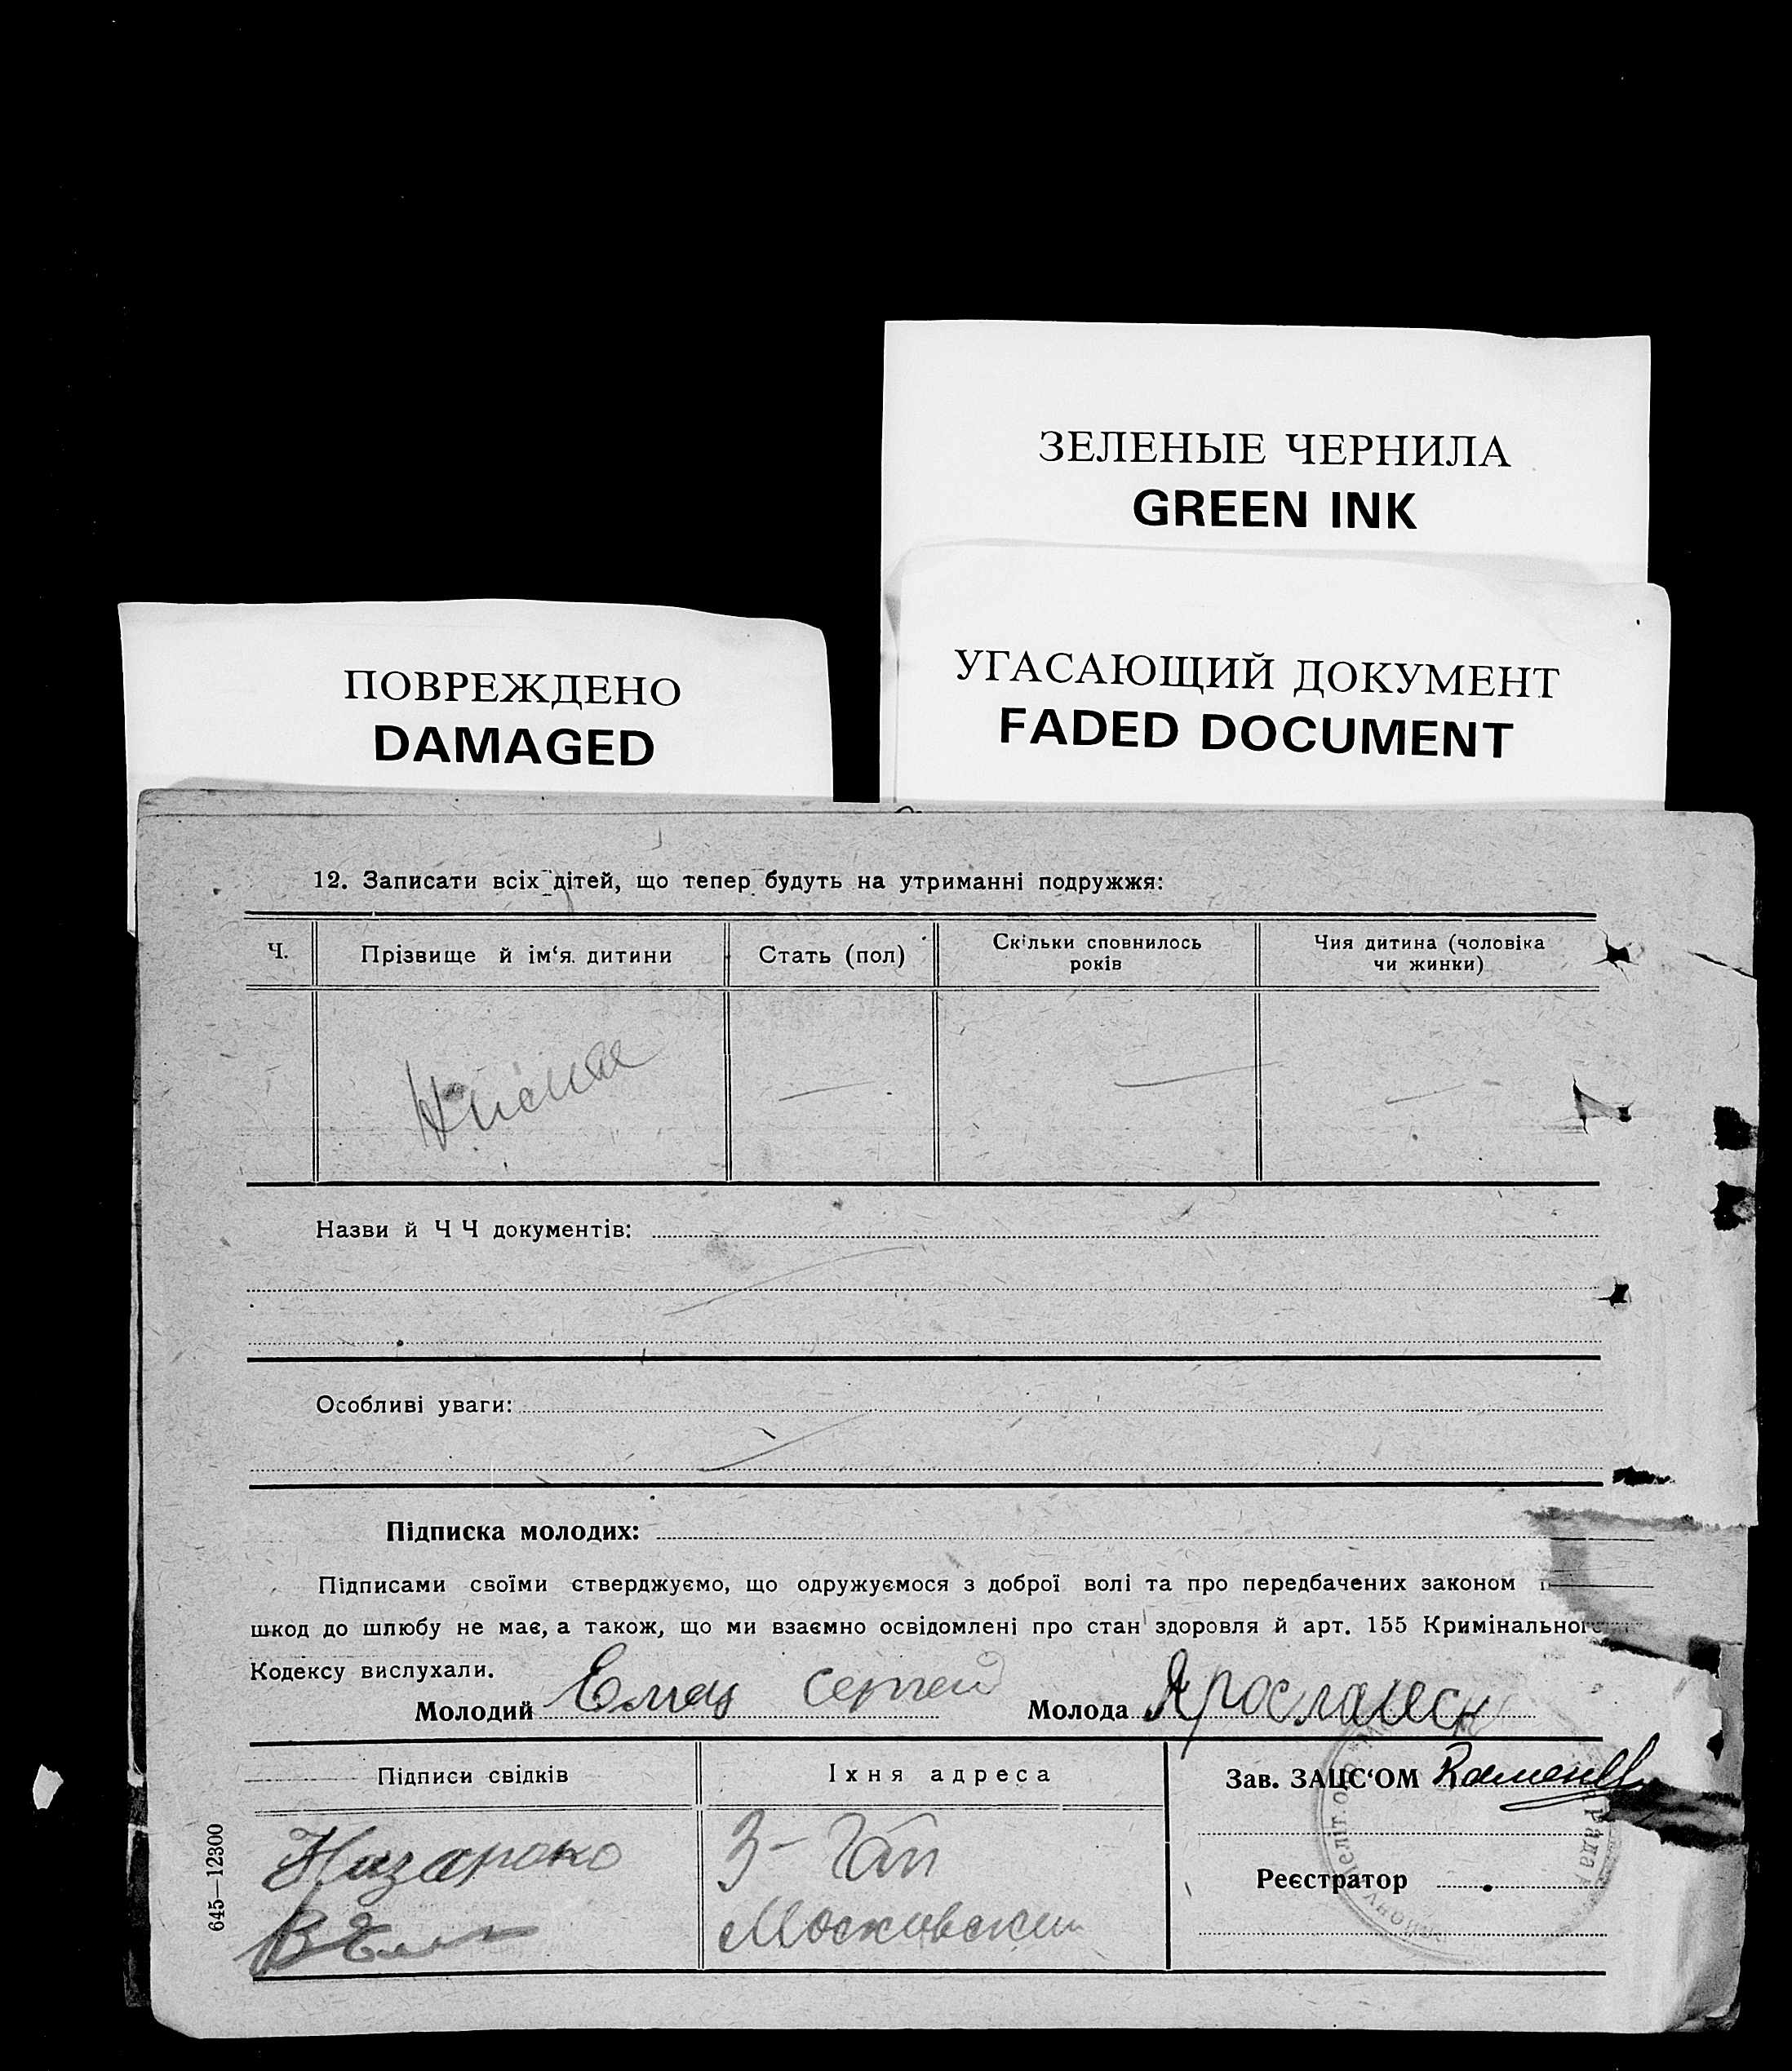 ЗЕЛЕНЫЕ ЧЕРНИЛА
GREEN INK
УГАСАЮЩИЙ ДОКУМЕНТ
FADED DOCUMENT
ПОВРЕЖДЕНО
DAMAGED
12. Записати всіх дітей, що тепер будуть на утриманні подружжя:
Ч. Прізвище й ім‘я дитини Стать (пол) Скільки сповнилось років Чия дитина (чоловіка чи жинки)
Назви й Ч Ч документів:
Особливі уваги:
Підписка молодих:
Підписами своїми стверджуємо, що одружуємося з доброї волі та про передбачених законом
шкод до шлюбу не має, а також, що ми взаємно освідомлені про стан здоровля й арт. 155 Кримінального
Кодексу вислухали.
Молодий Сергей Молода
Підписи свідків Їхня адреса Зав. ЗАЦС‘ОМ
3-
Реєстратор
645—12300